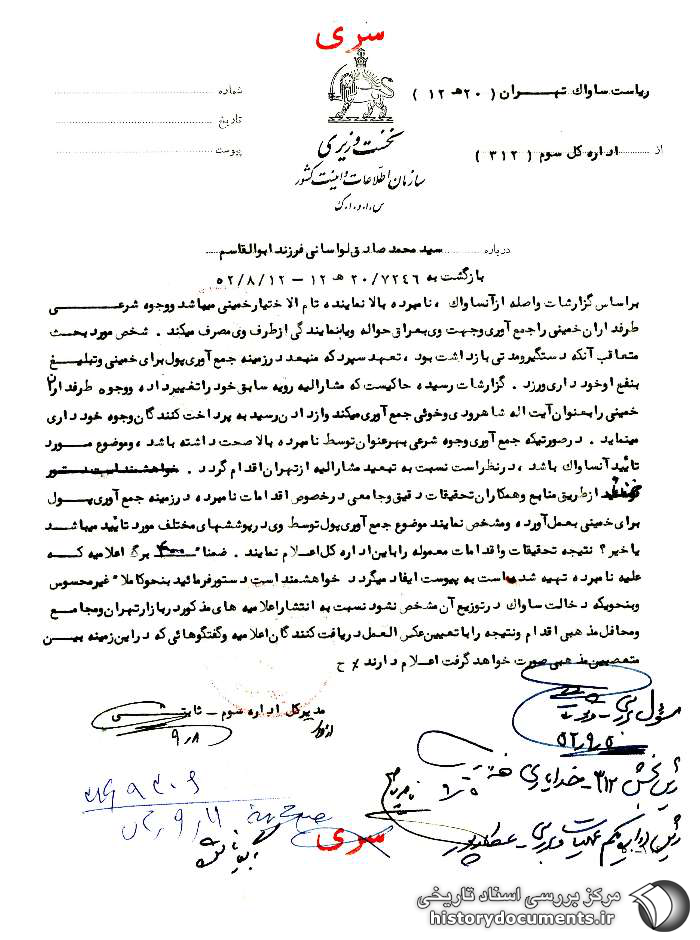 سری
ریاست ساواک تهران ( ۲۰ هـ ۱۲ )
شماره
از اداره کل سوم ( ۳۱۲ )
تاریخ
پیوست
نخست وزیری
سازمان اطلاعات و امنیت کشور
س.ا.و.ا.ک
درباره سید محمد صادق لواسانی فرزند ابوالقاسم
بازگشت به ۲۰/۷۲۴۶ هـ ۱۲ – ۵۲/۸/۱۲
براساس گزارشات واصله از آنساواک ، نامبرده بالا نماینده تام الاختیار خمینی میباشد و وجوه شرعی
طرفداران خمینی را جمع آوری و جهت وی بعراق حواله و یا بنمایندگی از طرف وی مصرف میکند . شخص مورد بحث
متعاقب آنکه دستگیر و مدتی بازداشت بود ، تعهد سپرد که منبعد در زمینه جمع آوری پول برای خمینی و تبلیغ
بنفع او خودداری ورزد . گزارشات رسیده حاکیست که مشارالیه رویه سابق خود را تغییر داده و وجوه طرفداران
خمینی را بعنوان آیت اله شاهرودی و خوئی جمع آوری میکند و از دادن رسید به پرداخت کنندگان وجوه خودداری
مینماید . در صورتیکه جمع آوری وجوه شرعی بهر عنوان توسط نامبرده بالا صحت داشته باشد ، و موضوع مورد
تائید آنساواک باشد ، در نظر است نسبت به تبعید مشارالیه از تهران اقدام گردد . خواهشمند است دستور
از طریق منابع و همکاران تحقیقات دقیق و جامعی در خصوص اقدامات نامبرده در زمینه جمع آوری پول
برای خمینی بعمل آورده و مشخص نمایند موضوع جمع آوری پول توسط وی در پوششهای مختلف مورد تائید میباشد
یا خیر ؟ نتیجه تحقیقات و اقدامات معموله را باین اداره کل اعلام نمایند . ضمنا" ۴۰۰ برگ اعلامیه که
علیه نامبرده تهیه شده است به پیوست ایفاد میگردد خواهشمند است دستور فرمائید بنحو کاملا" غیر محسوس
و بنحویکه دخالت ساواک در توزیع آن مشخص نشود نسبت به انتشار اعلامیه های مذکور در بازار تهران و مجامع
و محافل مذهبی اقدام و نتیجه را با تعیین عکس العمل دریافت کنندگان اعلامیه و گفتگوهائی که در این زمینه بین
متعصبین مذهبی صورت خواهد گرفت اعلام دارند ٪ ح
مدیر کل اداره سوم – ثابتی
از طرف
۹/۸
مسئول بررسی
۵۲/۹/۵
رئیس بخش ۳۱۲ – خدایاری
رئیس اداره یکم عملیات و بررسی – عطارپور
سری
مرکز بررسی اسناد تاریخی
historydocuments.ir